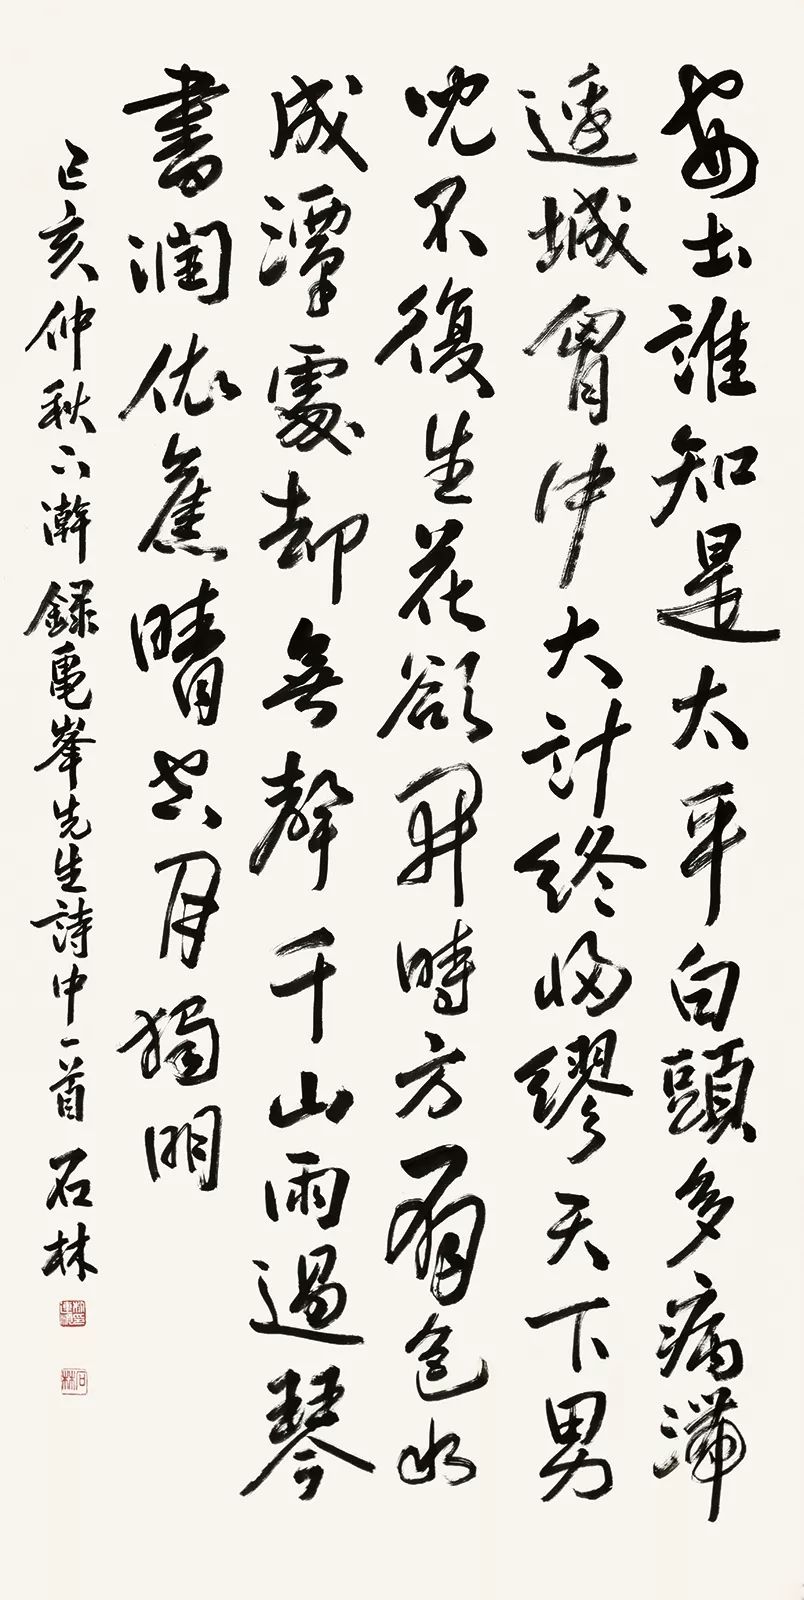 安土誰知是太平白頭多病滯
邊城胷中大計終歸繆天下男
兒不復生花欲開時方有色水
成潭處却無聲千山雨過琴
書潤依舊晴空月獨明
己亥仲秋下澣錄龜峯先生詩中一首 石林